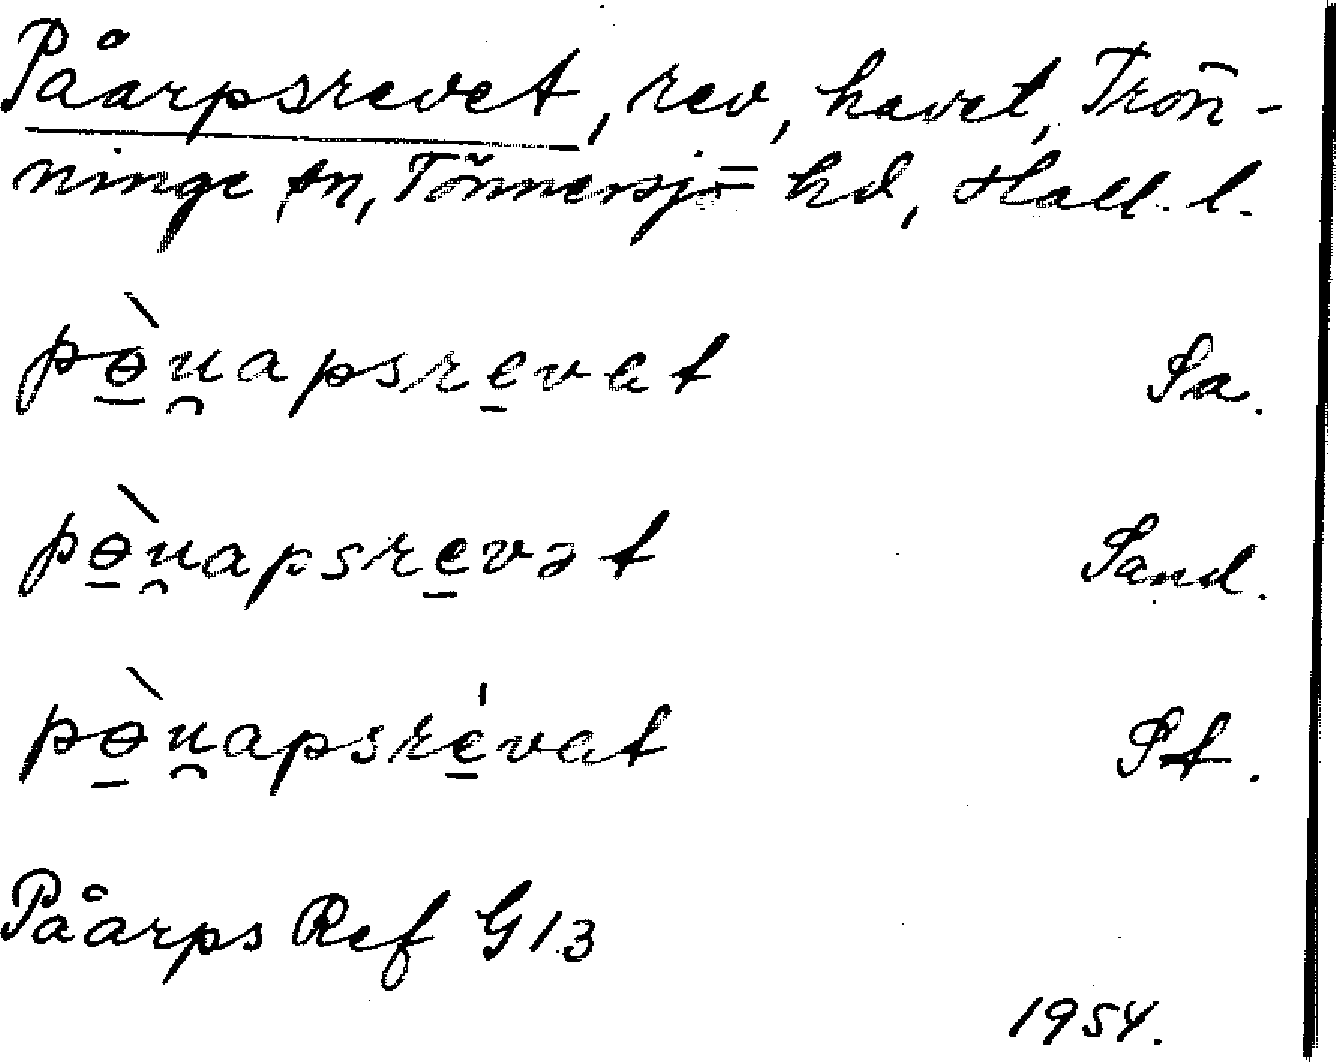 Påarpsrevet, rev, havet, Trön-
ninge sn, Tönnersjö hd, Hall. l.
pɵ̠̀u̯apsre̠vet Sa.
pɵ̠̀u̯apsre̠vət Sand.
pɵ̠̀u̯apsre̠̍vat St.
Påarps Ref G 13
1954.